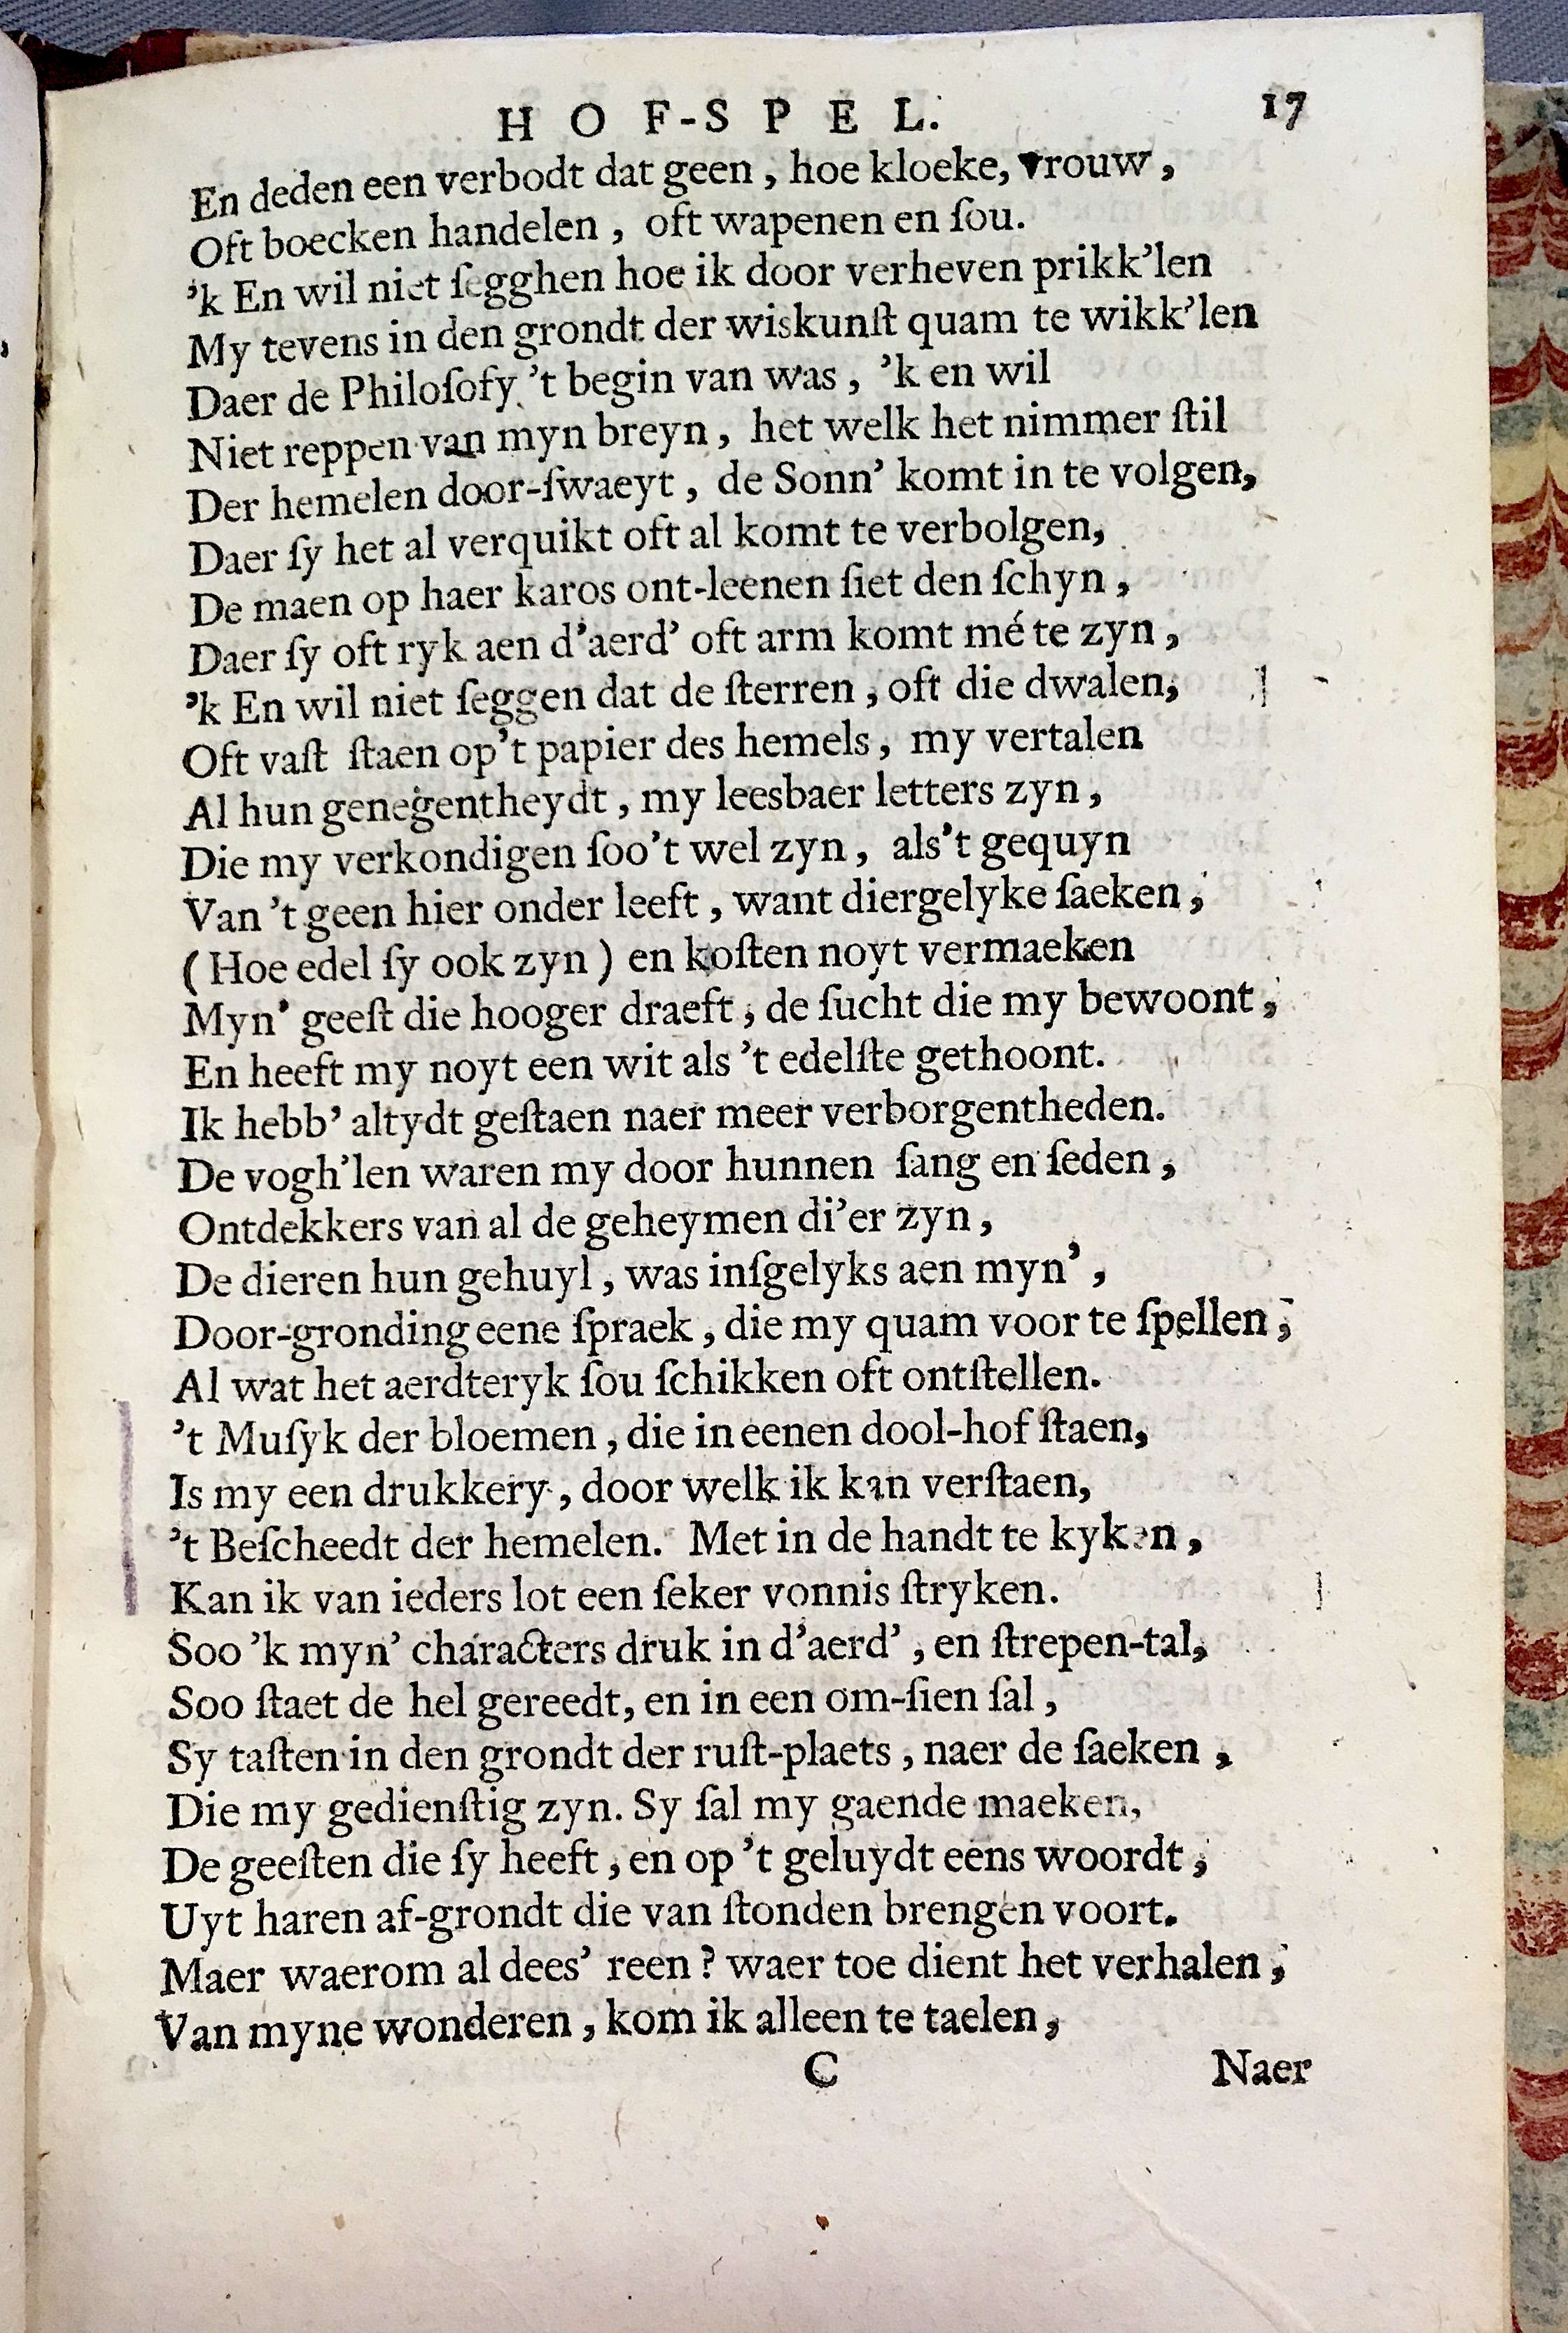 HOF-SPEL. 17
En deden een verbodt dat geen, hoe kloeke, vrouw,
Oft boecken handelen, oft wapenen en ſou.
’k En wil niet ſegghen hoe ik door verheven prikk’len
My tevens in den grondt der wiskunſt quam te wikk’len
Daer de Philoſofy ’t begin van was, ’k en wil
Niet reppen van myn breyn, het welk het nimmer ſtil
Der hemelen door-ſwaeyt, de Sonn’ komt in te volgen,
Daer ſy het al verquikt oft al komt te verbolgen,
De maen op haer karos ont-leenen ſiet den ſchyn,
Daer ſy oft ryk aen d’aerd’ oft arm komt mé te zyn,
’k En wil niet ſeggen dat de ſterren, oft die dwalen,
Oft vaſt ſtaen op’t papier des hemels, my vertalen
Al hun genegentheydt, my leesbaer letters zyn,
Die my verkondigen ſoo’t wel zyn, als’t gequyn
Van ’t geen hier onder leeft, want diergelyke ſaeken,
(Hoe edel ſy ook zyn) en koſten noyt vermaeken
Myn’ geeſt die hooger draeft, de ſucht die my bewoont,
En heeft my noyt een wit als ’t edelſte gethoont.
Ik hebb’ altydt geſtaen naer meer verborgentheden.
De vogh’len waren my door hunnen ſang en ſeden,
Ontdekkers van al de geheymen di’er zyn,
De dieren hun gehuyl, was inſgelyks aen myn’,
Door-gronding eene ſpraek, die my quam voor te ſpellen,
Al wat het aerdteryk ſou ſchikken oft ontſtellen.
’t Muſyk der bloemen, die in eenen dool-hof ſtaen,
Is my een drukkery, door welk ik kan verſtaen,
’t Beſcheedt der hemelen. Met in de handt te kyken,
Kan ik van ieders lot een ſeker vonnis ſtryken.
Soo ’k myn’ characters druk in d’aerd’, en ſtrepen-tal,
Soo ſtaet de hel gereedt, en in een om-ſien ſal,
Sy taſten in den grondt der ruſt-plaets, naer de ſaeken,
Die my gedienſtig zyn. Sy ſal my gaende maeken,
De geeſten die ſy heeft, en op ’t geluydt eens woordt,
Uyt haren af-grondt die van ſtonden brengen voort.
Maer waerom al dees’ reen? waer toe dient het verhalen,
Van myne wonderen, kom ik alleen te taelen,
C Naer